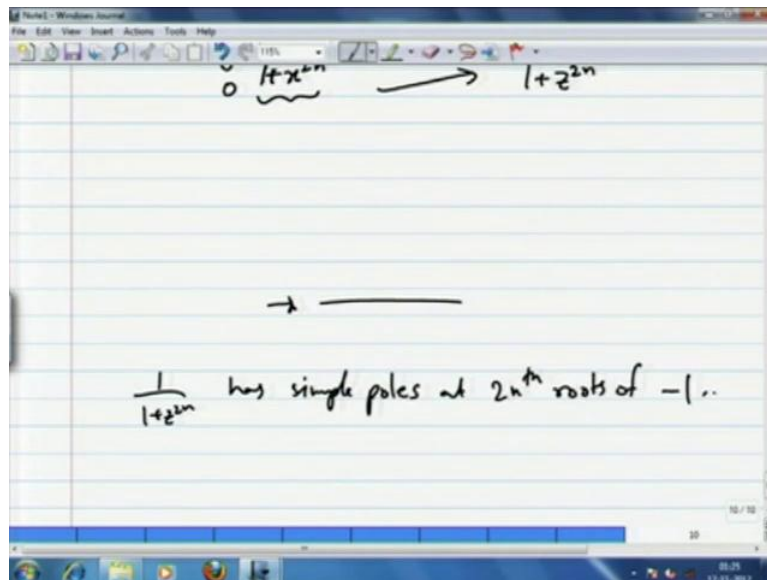 Note1 - Windows Journal
File Edit View Insert Actions Tools Help
115%
0 1+x^{2n} → 1+z^{2n}
→
\frac{1}{1+z^{2n}} has simple poles at 2n^{th} roots of -1..
10 / 10
10
01:25